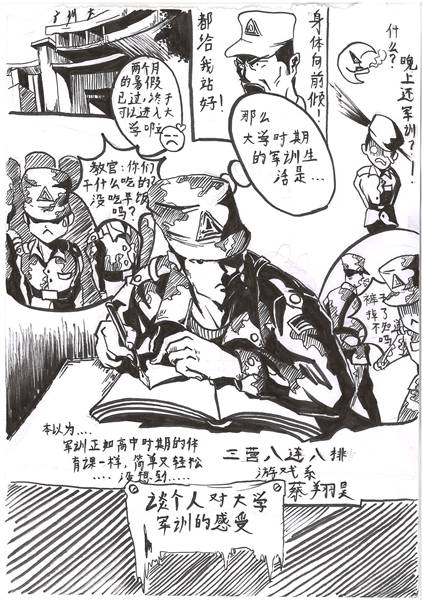 广州大
两个月
的暑假
已过,终于
可以进入大
学啦
都给我站好!
身体向前倾!
什么?
晚上还军训?!
那么
大学时期
的军训生
活是...
教官:你们
干什么吃的
没吃早饭
吗?
裤子
掉了
不知
吗
本以为....
军训正如高中时期的体
育课一样,简单又轻松
....没想到.....
三营八连八排
游戏系
蔡翔昊
谈个人对大学
军训的感受